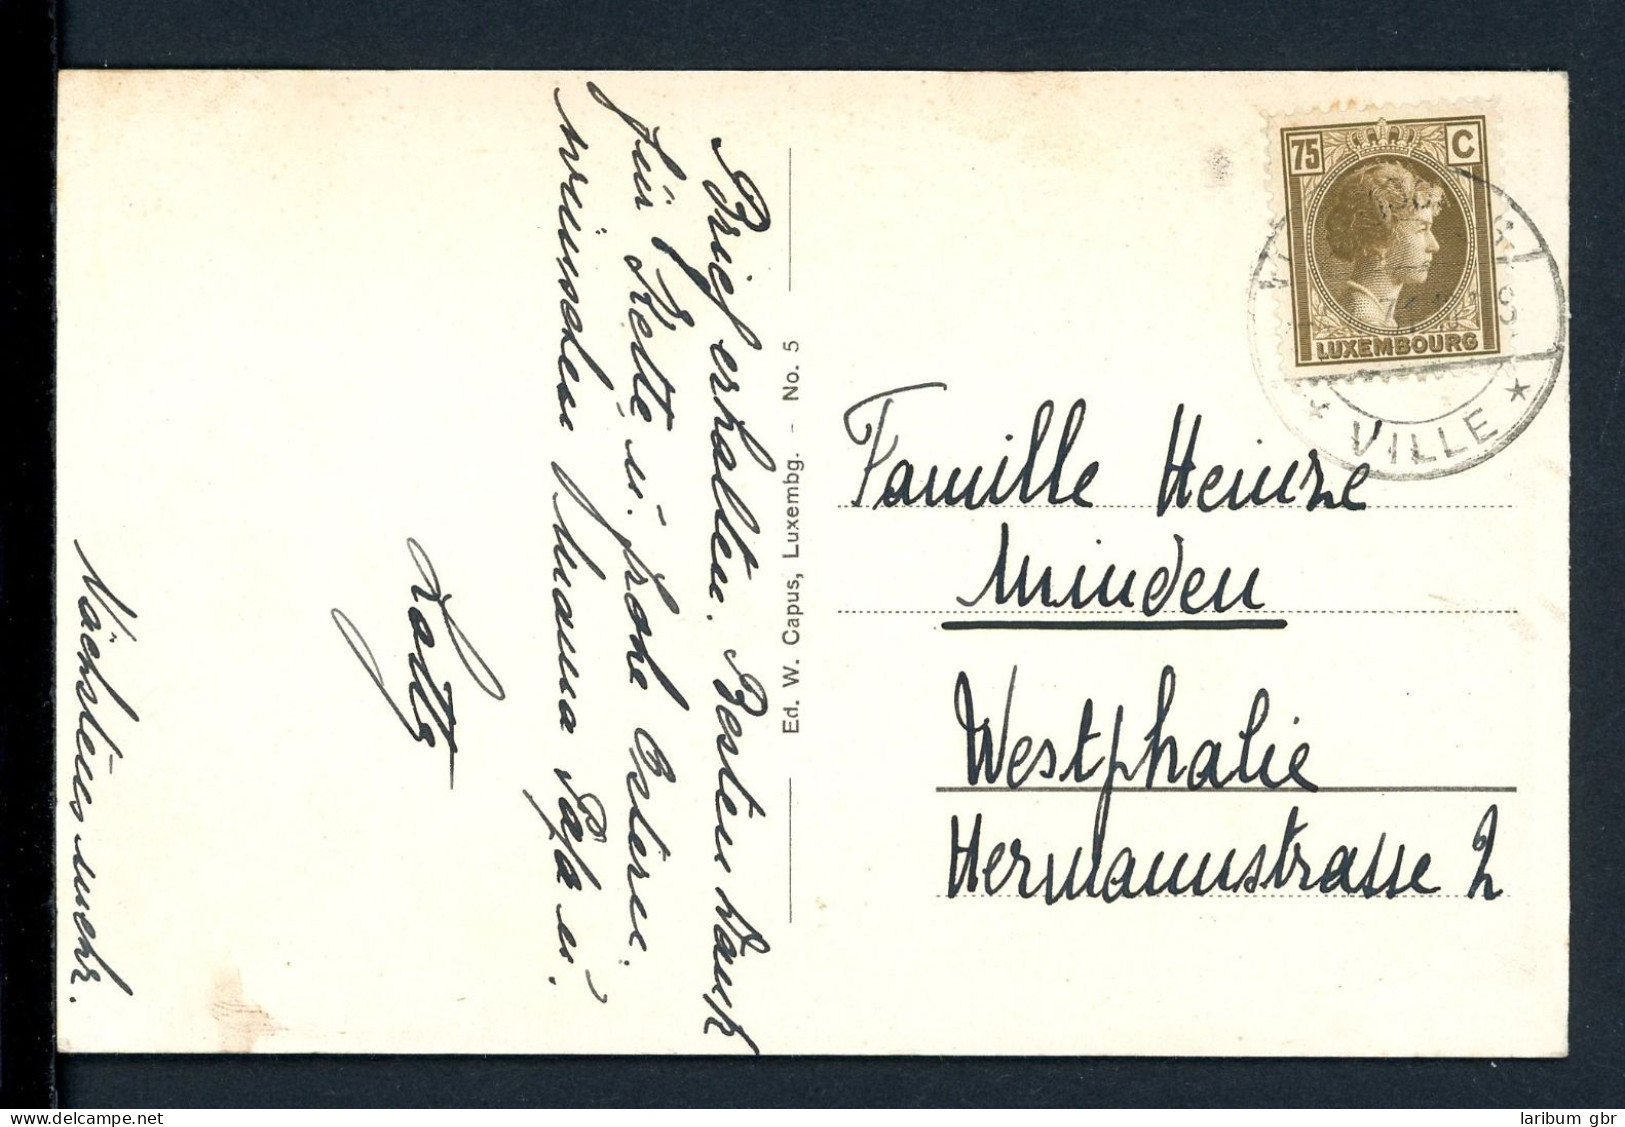 Brief erhalten. Besten Dank
für Kette u. frohe Ostern.
wünschen Mama Papa u.
Lotte
Nächstens mehr.
Ed. W. Capus, Luxembg. - No. 5
75 C
LUXEMBOURG
VILLE
Famille Heinze
Minden
Westphalie
Hermannstrasse 2
delcampe.net
laribum gbr